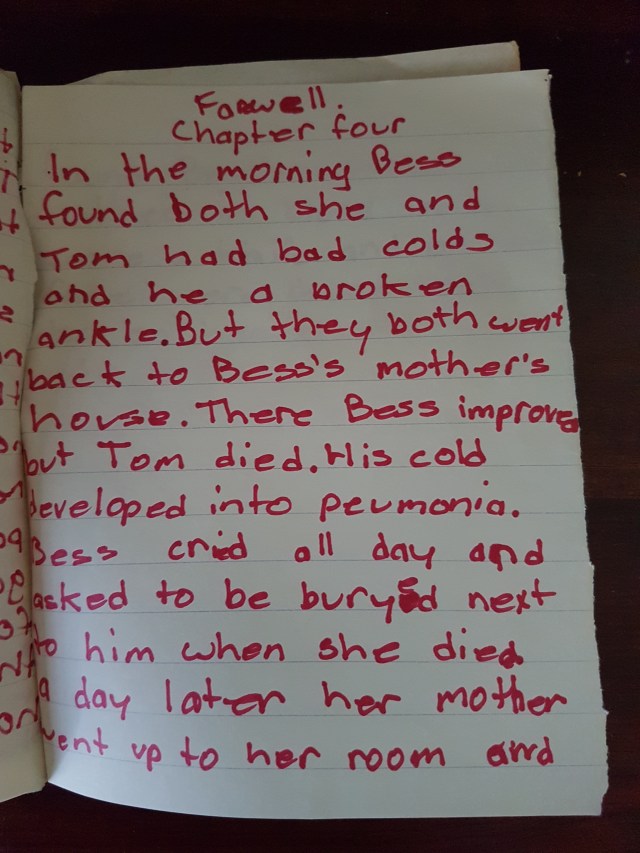 Farwell.
Chapter four
In the morning Bess
found both she and
Tom had bad colds
and he a broken
ankle. But they both went
back to Bess's mother's
house. There Bess improved
but Tom died. His cold
developed into peumonia.
Bess cried all day and
asked to be buryed next
to him when she died
a day later her mother
went up to her room and